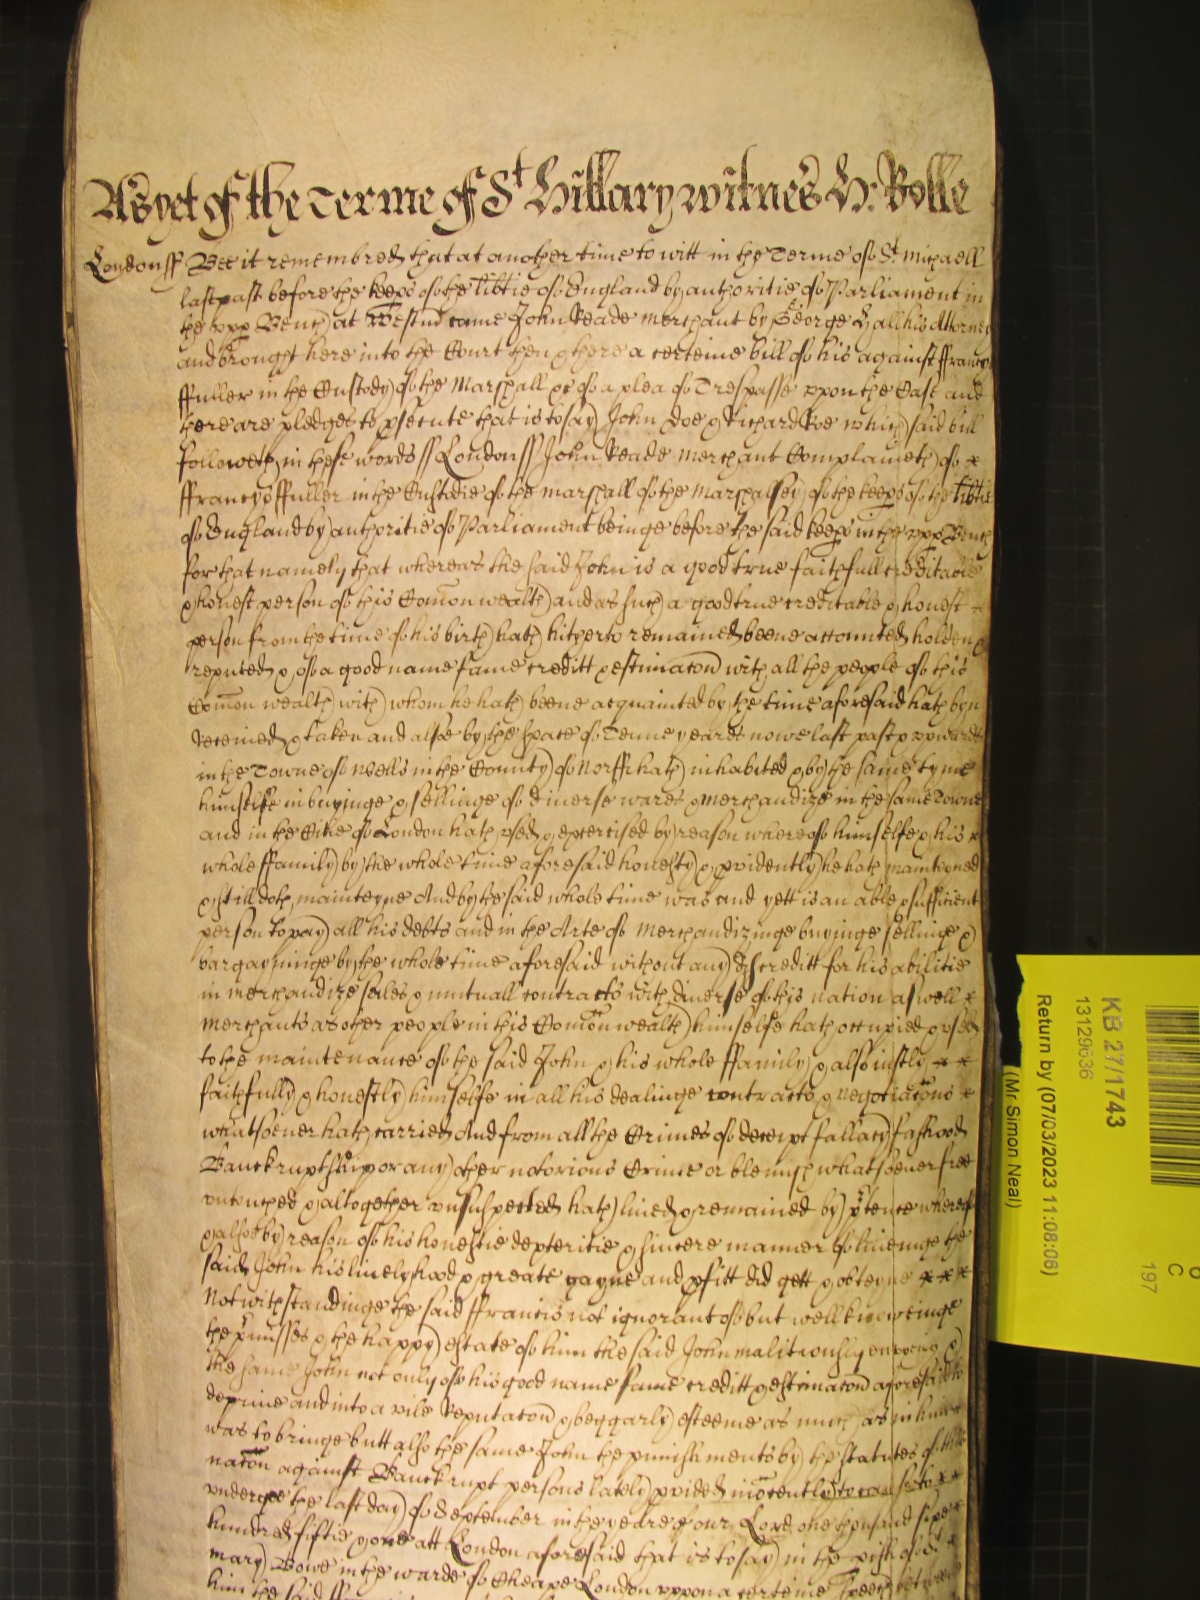 As yet of the Terme of St Hillary witnes H: Rolle
London ss Bee it remembred that at another time to witt in the Terme of St Michaell
last past before the keeps of the libtie of England by authoritie of Parliament in
the vpp Bench at Westm came John Reade merchant by George Hall his Attorney
and brought here into the Court then & there a certeine bill of his against ffrancys
ffuller in the Custody of the Marshall &c of a plea of Trespasse vpon the Case and
there are pledges to psecute that is to say John Doe & Richard Roe which said bill
followeth in these words ss London ss John Reade merchant Complaineth of
ffrancys ffuller in the Custodie of the marshall of the Marshalsey of the keeps of the libtie
of England by authoritie of Parliament beinge before the said keeps in the vpp Bench
for that namely that whereas the said John is a good true faithfull creditable
& honest person of this Comon wealth and as such a good true creditable & honest
person from the time of his birth hath hitherto remained beene accounted holden &
reputed & of a good name fame creditt & estimacon with all the people of this
Comon wealth with whom he hath beene acquainted by the time aforesaid hath byn
Receined & taken and alsoe by the space of Tenne yeares nowe last past & vpwards
in the Towne of Wells in the County of Norff hath inhabited & by the same tyme
himselfe in buyinge & sellinge of diuerse wares & merchandize in the same Towne
and in the Citie of London hath vsed & exercised by reason whereof himselfe & his
whole ffamily by the whole time aforesaid honestly & pvidently he hath mainteyned
& still doth mainteyne And by the said whole time was and yett is an able & sufficient
person to pay all his debts and in the Arte of Merchandizinge buyinge sellinge &
bargayninge by the whole time aforesaid without any discreditt for his abilitie
in merchandize sales & mutuall contracts with diuerse of this nation as well
merchants as other people in this Comon wealth himselfe hath occupied & vsed
to the maintenance of the said John & his whole ffamily & also iustly
faithfully & honestly himselfe in all his dealinge contracts & negotiacons
whatsoeuer hath carried And from all the Crimes of deceipt fallacy falshood
Banckruptshipp or any other notorious Crime or blemish whatsoeuer free
vntouched & altogether vnsuspected hath liued & remained by ptence whereof
& also by reason of his honestie dexteritie & sincere manner of liueinge the
said John his liuelyhood & greate gayne and pfitt did gett & obteyne
Notwithstandinge the said ffrancis not ignorant of but well knoweinge
the pmisses & the happy estate of him the said John malitiously envying &
the same John not only of his good name fame creditt & estimacon aforesaid to
depriue and into a vile Reputacon & beggarly esteeme as much as in him
was to bringe butt also the same John the punishments by the statutes of this
nacon against Banckrupt persons lately pvided inocently to cause to
vndergoe the last day of September in the yeare of our Lord one thousand sixe
hundred fiftie & one att London aforesaid that is to say in the pish of St
Mary Bowe in the warde of Cheape London vppon a certeine speech betweene
him the said
KB 27/1743
13129636
Return by (07/03/2023 11:08:08)
(Mr Simon Neal)
C
197